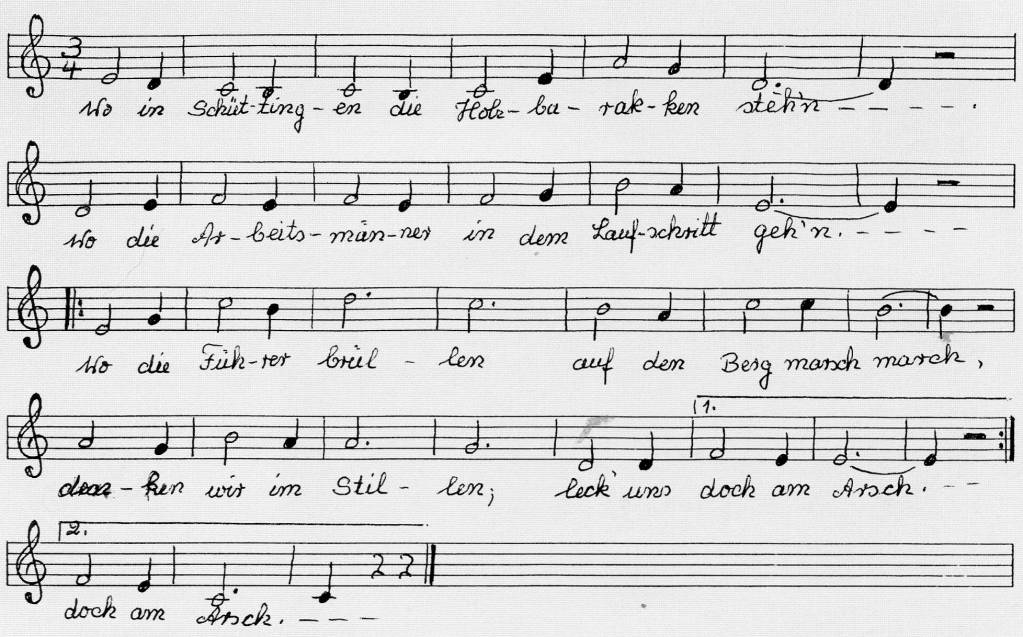 3
4
Wo in Schüt-ting-en die Holz-ba-rak-ken steh'n - - - - .
Wo die Ar-beits-män-ner in dem Lauf-schritt geh'n. - - - -
Wo die Füh-rer brül - len auf den Berg marsch marsch,
1.
den-ken wir im Stil - len; leck' uns doch am Arsch. - -
2.
doch am Arsch. - - - -